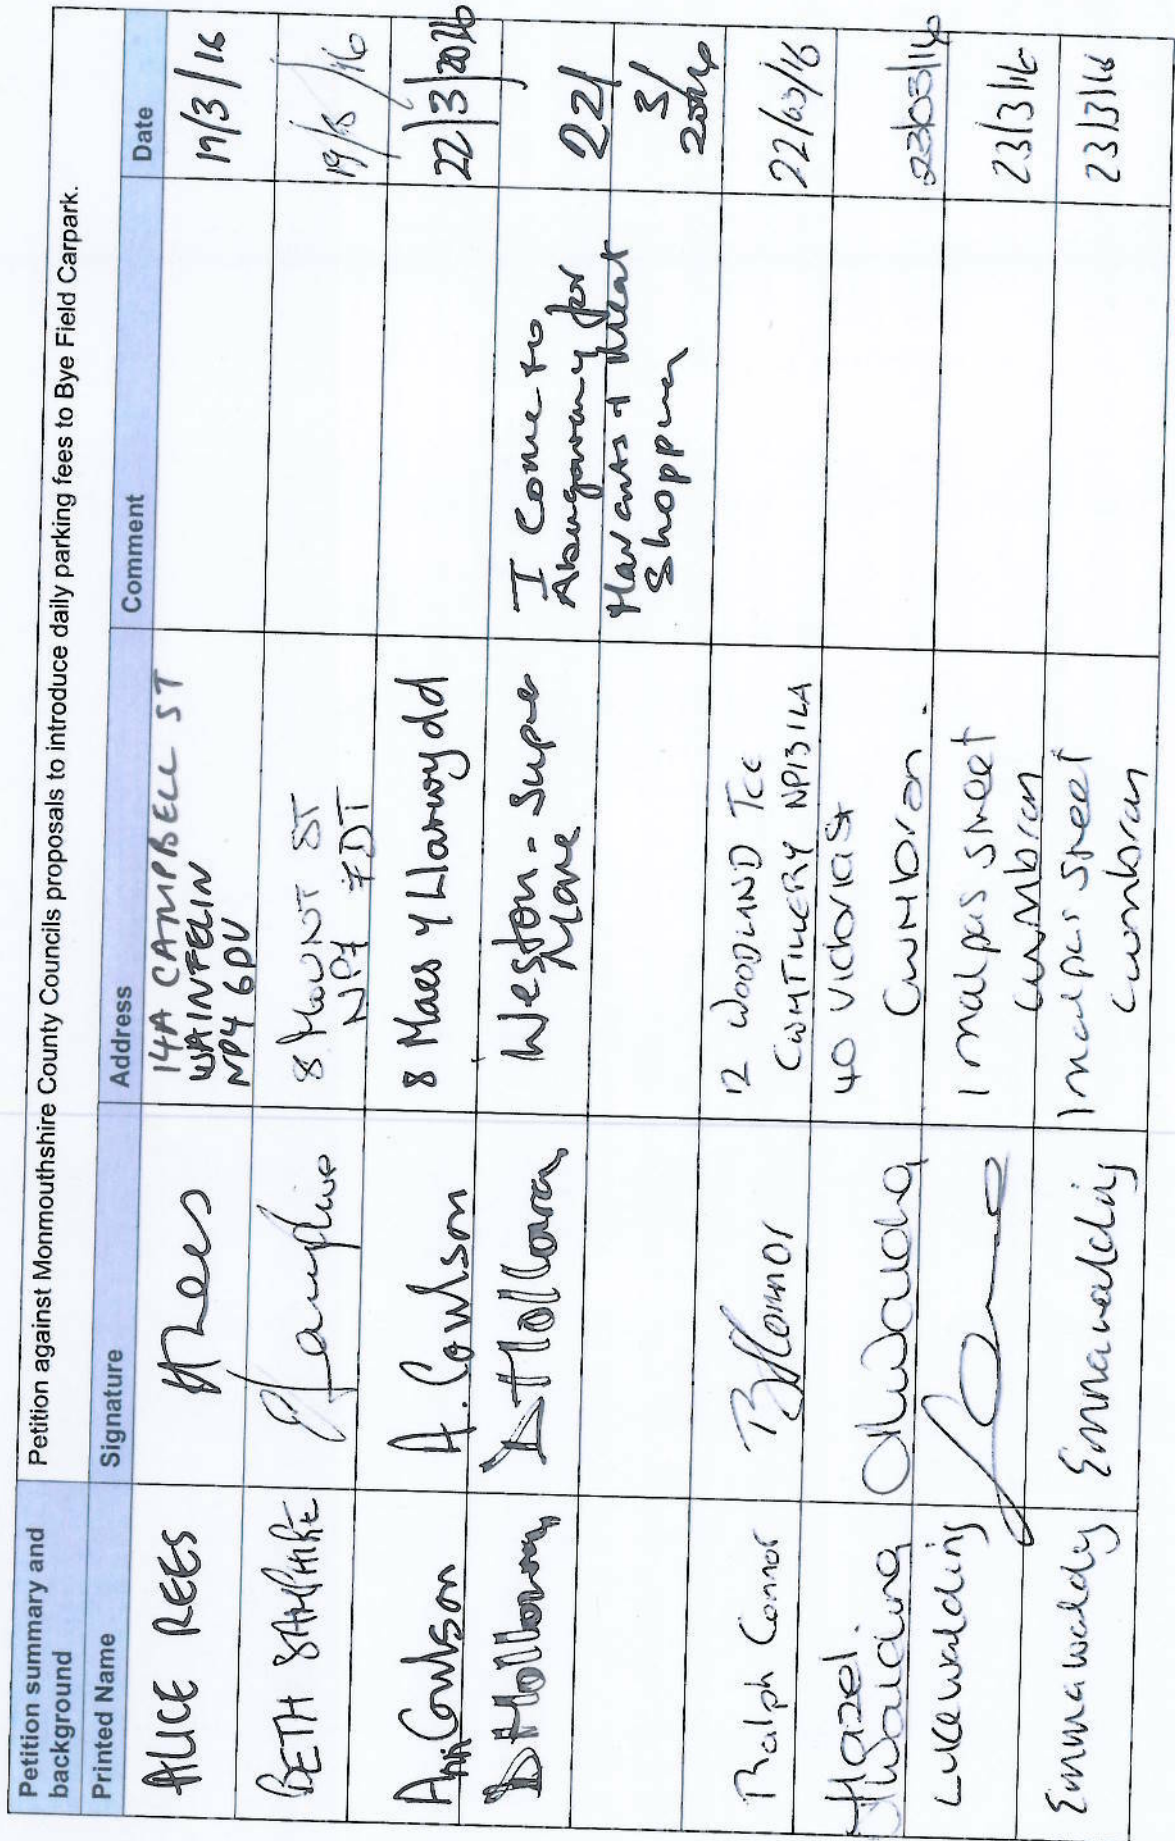 Petition summary and background
Petition against Monmouthshire County Councils proposals to introduce daily parking fees to Bye Field Carpark.
Printed Name Signature Address Comment Date
ALICE REES ARees 14A CAMPBELL ST
WAINFELIN
NP4 6DU 17/3/16
BETH 8 MOUNT ST
NP7 7DT 19/3/16
Ann Cowlson A. Cowlson 8 Maes y Llarwydd 22/3/2016
D Holloway D Holloway Weston-Supe
Mare
I Come to
Abergavenny for
Markets + Meat
Shopping
22/
3/
2016
Ralph Connor R Connor 12 WOODLAND TCE
CWMTILLERY NP13 1LA 22/03/16
Hazel
Walding HWalding 40 Victoria St
CWMbran. 23/03/16
Luke walding 1 malpas street
cwmbran 23/3/16
Emma walding Emma walding 1 malpas street
cwmbran 23/3/16